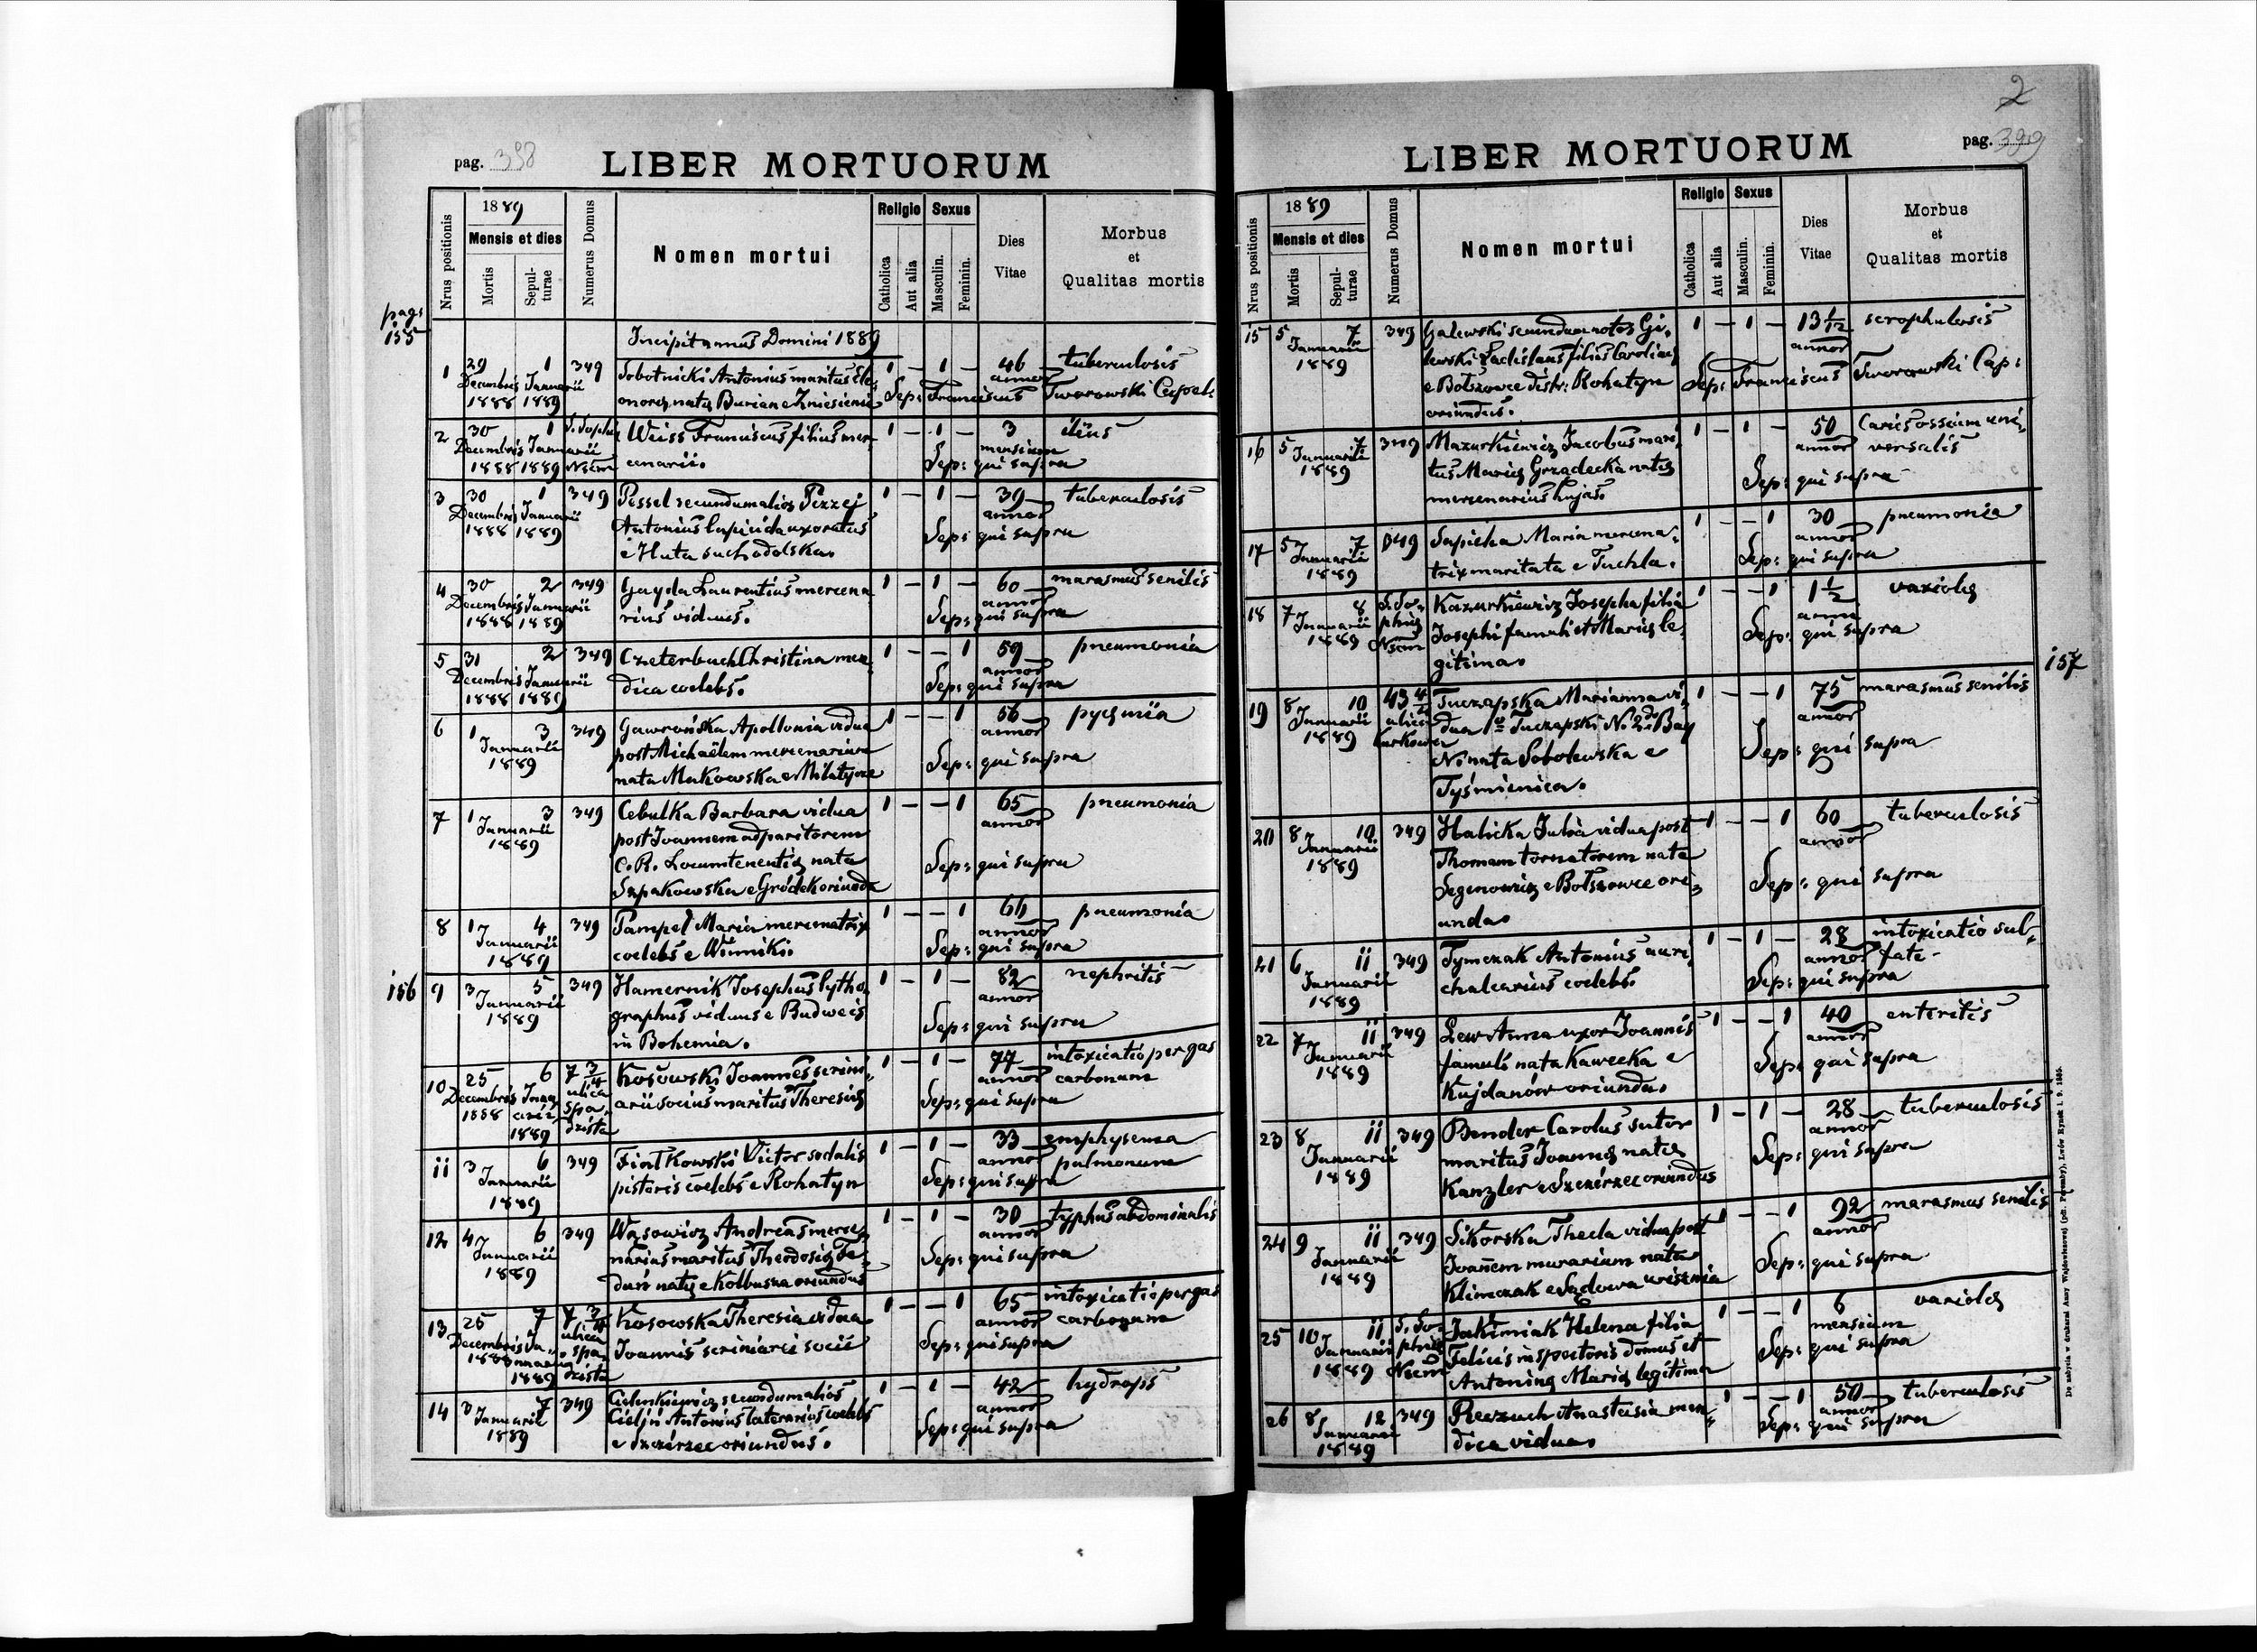 pag. 398
LIBER MORTUORUM
Nrus positionis
1889
Mensis et dies
Mortis
Sepul-
turae
Numerus Domus
Nomen mortui
Religio
Catholica
Aut alia
Sexus
Masculin.
Feminin.
Dies
Vitae
Morbus
et
Qualitas mortis
pag:
155
Incipit annus Domini 1889
1 29 1 349 Sobotnicki Antonius maritus Ele, 1 — 1 — 46 tuberculosis
Decembris Januarii onorę natę Burian e Zniesienie Sep: Franciscus annor Tworowski Capel:
1888 1889
2 30 1 S. Sophię Weiss Franciscus filius mer, 1 — 1 — 3 ilëus
Decembris Januarii cenarii. Sep: qui supra mensium
1888 1889 Nsem
3 30 1 349 Pessel secundum alios Pezzej 1 — 1 — 39 tuberculosis
Decembris Januarii Antonius lapicida uxoratus annor
1888 1889 e Huta suchodolska. Sep: qui supra
4 30 2 349 Gayda Laurentius mercena 1 — 1 — 60 marasmus senilis
Decembris Januarii rius viduus. annor
1888 1889 Sep: qui supra
5 31 2 349 Czeterbuch Christina men, 1 — — 1 59 pneumonia
Decembris Januarii dica coelebs. annor
1888 1889 Sep: qui supra
6 1 3 349 Gawrońska Apollonia vidua 1 — — 1 56 pyęmia
Januarii post Michaëlem mercenarium annor
1889 nata Makowska e Milatycze Sep: qui supra
7 1 3 349 Cebulka Barbara vidua 1 — — 1 65 pneumonia
Januarii post Joannem adparitorem annor
1889 C. R. Locumtenentię nata Sep: qui supra
Szpakowska e Gródek oriunda
8 1 4 349 Pampel Maria mercenatrix 1 — — 1 64 pneumonia
Januarii coelebs e Winniki. annor
1889 Sep: qui supra
156
9 3 5 349 Hamernik Josephus lytho, 1 — 1 — 82 nephritis
Januarii graphus viduus e Budweis annor
1889 in Bohemia. Sep: qui supra
10 25 6 7 3/4 Kosowski Joannes scrini, 1 — 1 — 77 intoxicatio per gas
Decembris Janu, ulica arii socius maritus Theresię annor carbonum
1888 arii spa, Sep: qui supra
1889 dzista
11 3 6 349 Fiałkowski Victor sodalis 1 — 1 — 33 emphysema
Januarii pistoris coelebs e Rohatyn annor pulmonum
1889 Sep: qui supra
12 4 6 349 Wąsowicz Andreas merce, 1 — 1 — 30 typhus abdominalis
Januarii narius maritus Theodosię Fe, annor
1889 duń natę e Kolbusza oriundus Sep: qui supra
13 25 7 7 3/4 Kosowska Theresia vidua 1 — — 1 65 intoxicatio per gas
Decembris Ja, ulica Joannis scriniarii socii annor carbonum
1888 nuarii spa, Sep: qui supra
1889 dzista
14 3 7 349 secundum alios 1 — 1 — 42 hydrops
Januarii Antonius laterarius coelebs annor
1889 e Szczérzec oriundus. Sep: qui supra
2
pag. 399
LIBER MORTUORUM
Nrus positionis
1889
Mensis et dies
Mortis
Sepul-
turae
Numerus Domus
Nomen mortui
Religio
Catholica
Aut alia
Sexus
Masculin.
Feminin.
Dies
Vitae
Morbus
et
Qualitas mortis
15 5 7 349 Galewski secundum notos Gi, 1 — 1 — 13 1/12 scrophulosis
Januarii lewski Ladislaus filius Carolinę annor
1889 e Botszowce distr: Rohatyn Sep: Franciscus Tworowski Cap:
oriundus.
16 5 7 349 Mazurkiewicz Jacobus mari, 1 — 1 — 50 Caries ossium uni,
Januarii tus Marię Grządecka natę annor versalis
1889 mercenarius hujas. Sep: qui supra
17 5 7 349 Sapieha Maria mercena, 1 — — 1 30 pneumonia
Januarii trix maritata e Tuchla. annor
1889 Sep: qui supra
18 7 8 S. So, Kazurkiewicz Josepha filia 1 — — 1 1 1/2 variolę
Januarii phię Josephi famuli et Marię le, anni
1889 Nsem gitima. Sep: qui supra
157
19 8 10 43 4/2 Tuczapska Marianna vi, 1 — — 1 75 marasmus senilis
Januarii ulica dua 1º Tuczapski N. 2do Bay annor
1889 Łurkowa N. nata Sobolewska e Sep: qui supra
Tyśmienica.
20 8 10 349 Halicka Julia vidua post 1 — — 1 60 tuberculosis
Januarii Thomam tornatorem nata annor
1889 Segenowicz e Botszowce ori, Sep: qui supra
unda.
21 6 11 349 Tymczak Antonius auri, 1 — 1 — 28 intoxicatio sul,
Januarii chalcarius coelebs. annor fati-
1889 Sep: qui supra
22 7 11 349 Lew Anna uxor Joannis 1 — — 1 40 enteritis
Januarii famuli nata Kawecka e annor
1889 Kujdanów oriunda. Sep: qui supra
23 8 11 349 Bender Carolus sutor 1 — 1 — 28 tuberculosis
Januarii maritus Joannę natę annor
1889 Kanzler e Szczérzec oriundus Sep: qui supra
24 9 11 349 Sikorska Thecla vidua post 1 — — 1 92 marasmus senilis
Januarii Joannem murarium nata annor
1889 Klimczak e Sądowa wisznia Sep: qui supra
25 10 11 S. So, Jakimiak Helena filia 1 — — 1 6 variolę
Januarii phię Felicis inspectoris domus et mensium
1889 Nsem Antoninę Marię legitima Sep: qui supra
26 8 12 349 Reczuch Anastasia men, 1 — — 1 50 tuberculosis
Januarii dica vidua. annor
1889 Sep: qui supra
Do nabycia w drukarni Anny Wajdowiczowej (pd. Poremby), Lwów Rynek l. 9. 1885.